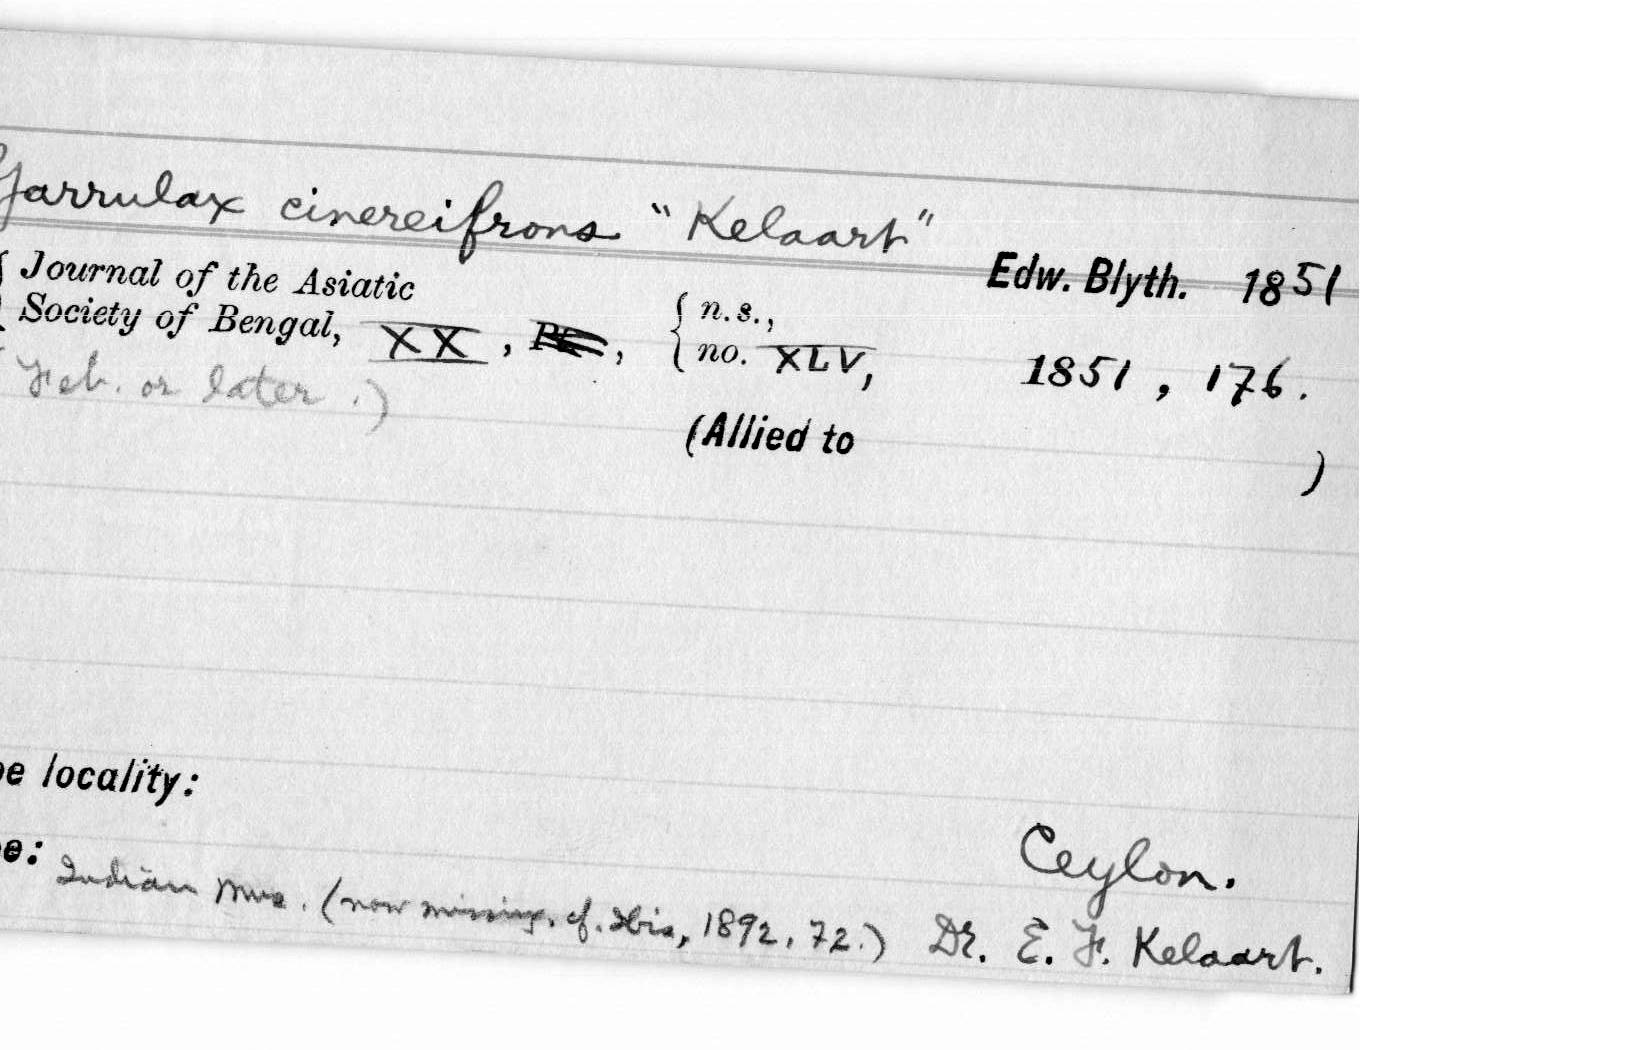 Garrulax cinereifrons "Kelaart"
Edw. Blyth. 1851
Journal of the Asiatic
Society of Bengal, XX, , { n.s.,
no. XLV, 1851, 176.
Feb. or later.)
(Allied to )
pe locality:
Ceylon.
pe: Indian Mus. (now missing, cf. Ibis, 1892, 72.) Dr. E. F. Kelaart.